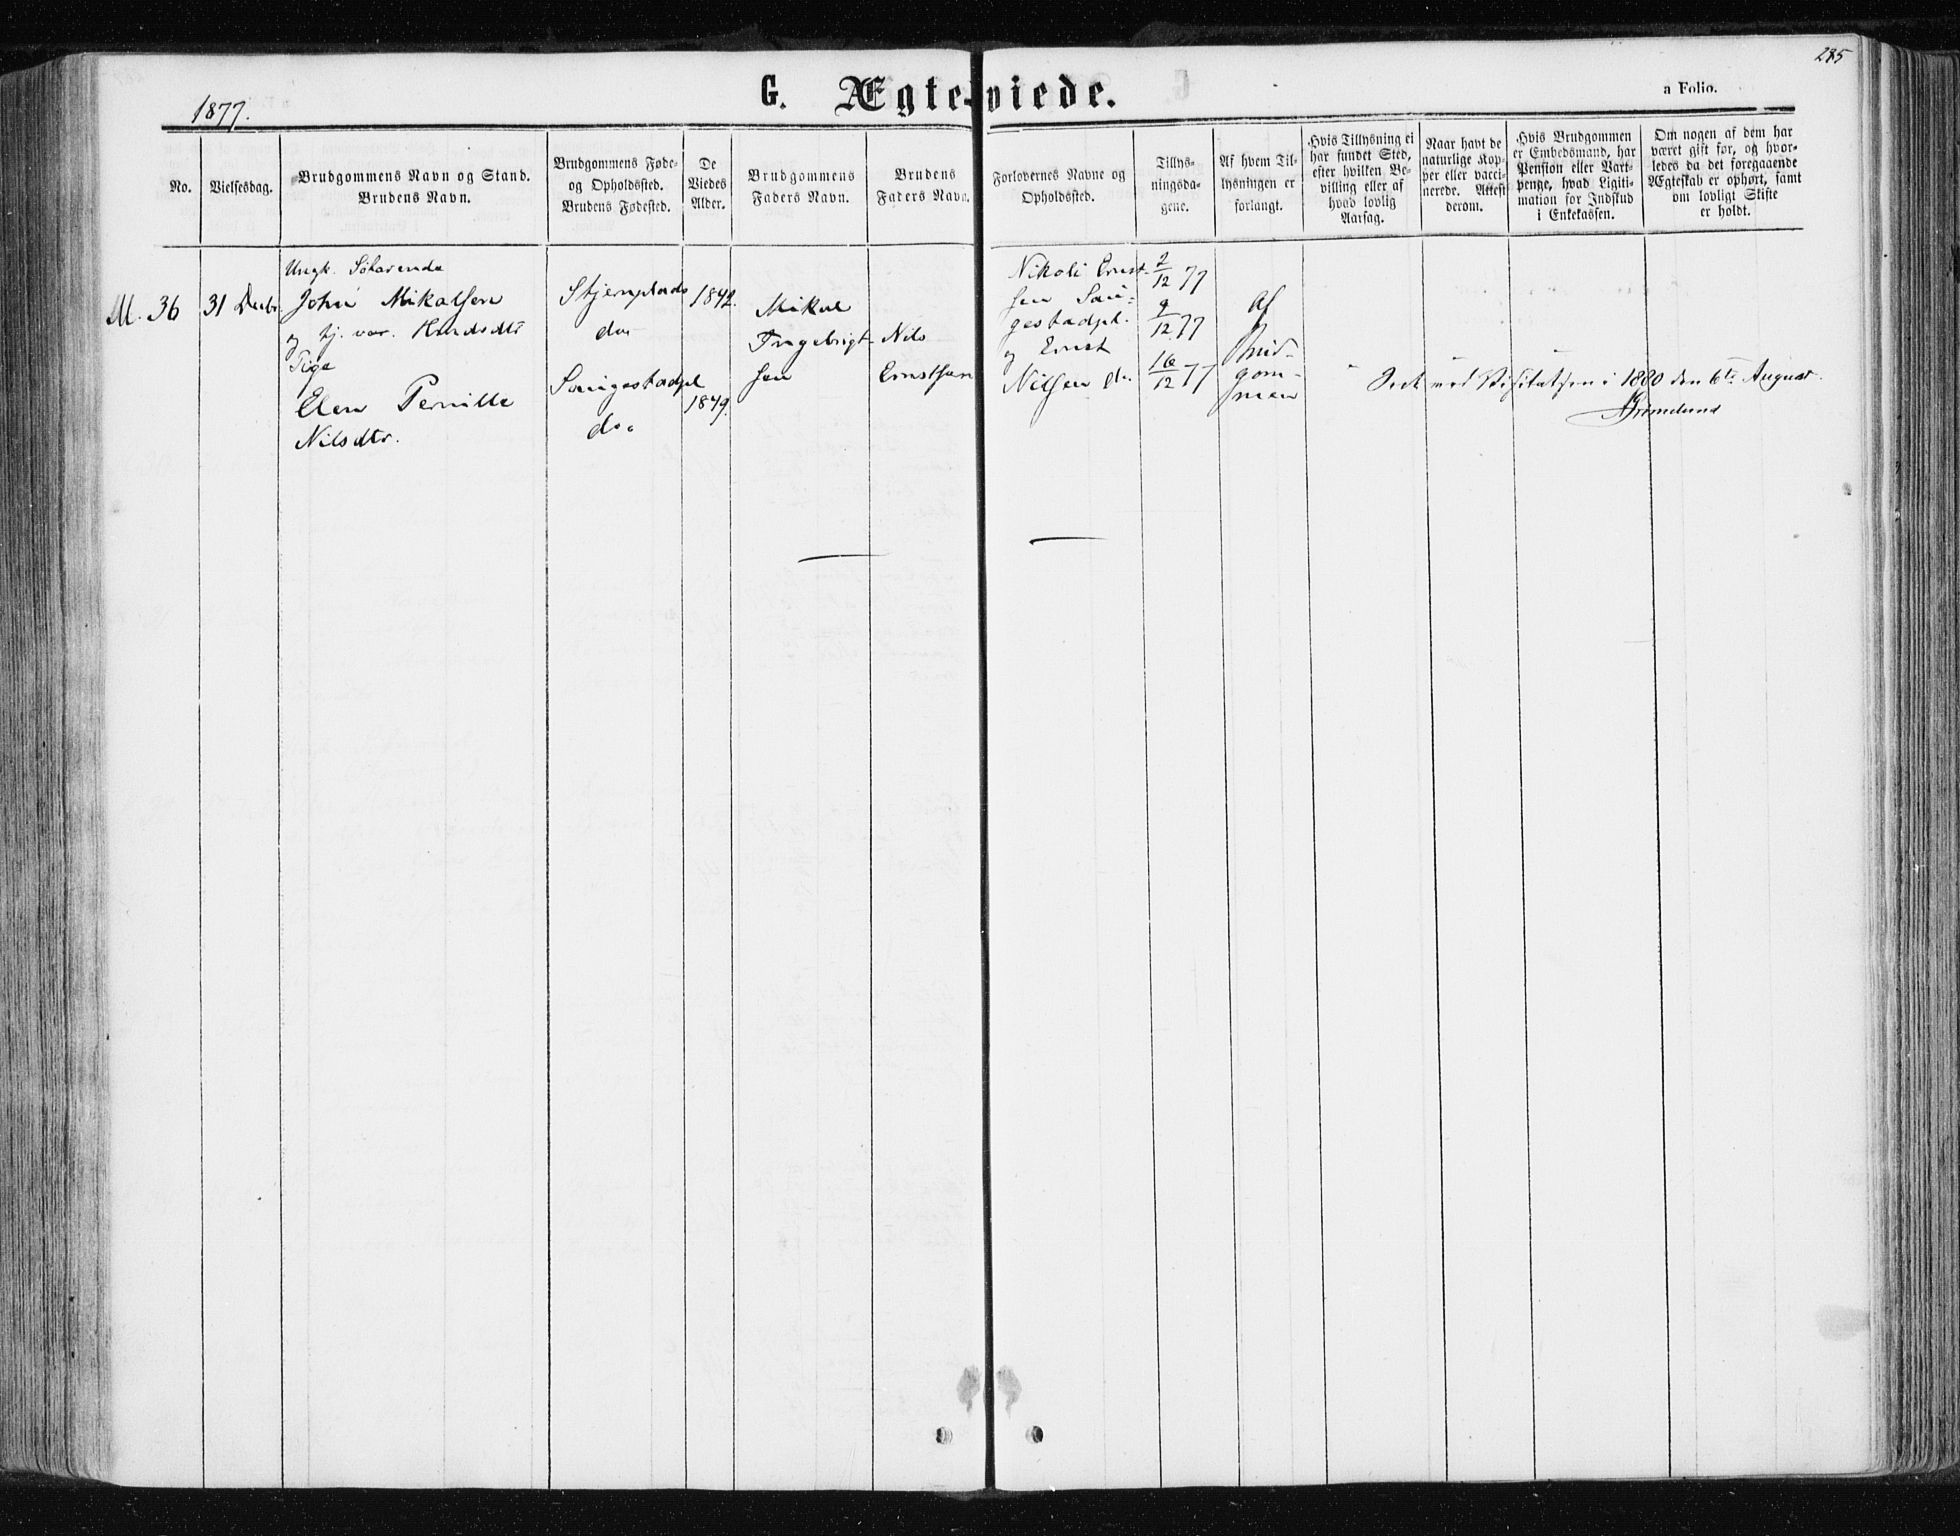 285
G. Ægte-viede.
a Folio.
1877.
No.
Vielsesdag.
Brudgommens Navn og Stand.
Brudens Navn.
Brudgommens Føde-
og Opholdssted.
Brudens Fødested.
De
Viedes
Alder.
Brudgommens
Faders Navn.
Brudens
Faders Navn.
Forlovernes Navne og
Opholdssted.
Tillys-
ningsda-
gene.
Af hvem Til-
lysningen er
forlangt.
Hvis Tillysning ei
har fundet Sted,
efter hvilken Be-
villing eller af
hvad lovlig
Aarsag.
Naar havt de
naturlige Kop-
per eller vacci-
nerede. Attest
derom.
Hvis Brudgommen
er Embedsmand, har
Pension eller Vart-
penge, hvad Ligiti-
mation for Indskud
i Enkekassen.
Om nogen af dem har
været gift før, og hvor-
ledes da det foregaaende
Ægteskab er ophørt, samt
om lovligt Skifte
er holdt.
M. 36
31 Decbr.
Ungk. Søfarende
John Mikalsen
og tj. var.
Pige
Elen Pernille
Nilsdtr.
do
do.
1842.
1849.
Mikal
Ingebrigt-
sen
Nils
Ernstsen
Nikoli Ernst-
sen
og Ernst
Nilsen do.
2/12 77
9/12 77
16/12 77
Af
Brud-
gom-
men
Seet ved Visitatsen i 1880 den 6te August.
Grimelund